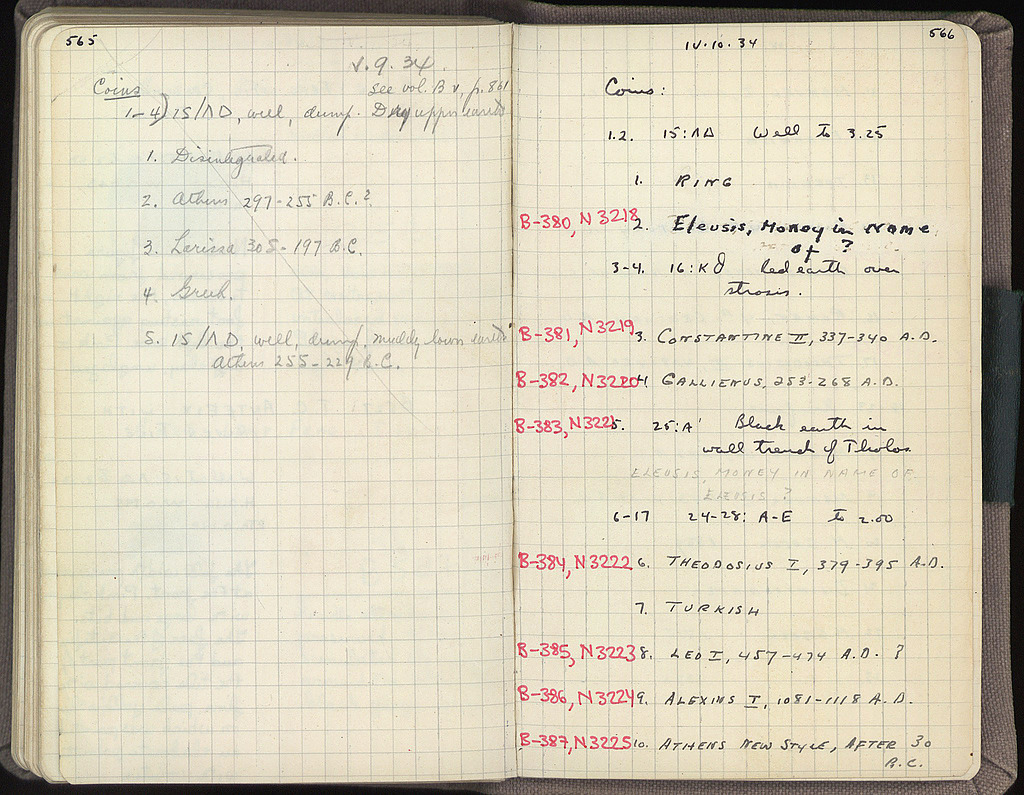 565
V.9.34.
Coins
see vol. B V, p. 861
1-4) 15/ΛΔ, well, dump. Dry upper earth
1. Disintegrated.
2. Athens 297-255 B.C.?
3. Larissa 305-197 B.C.
4. Greek.
5. 15/ΛΔ, well, dump, muddy lown earth
Athens 255-229 B.C.
566
IV.10.34
Coins:
1.2. 15:ΛΔ Well to 3.25
1. RING
B-380, N3218 2. Eleusis, Money in Name
of ?
3-4. 16:K Red earth over
strosis.
B-381, N3219 3. CONSTANTINE II, 337-340 A.D.
B-382, N3220 4. GALLIENUS, 253-268 A.D.
B-383, N3221 5. 25:A' Black earth in
wall trench of Tholos.
ELEUSIS, MONEY IN NAME OF
ELEUSIS ?
6-17 24-28: A-E to 2.00
B-384, N3222 6. THEODOSIUS I, 379-395 A.D.
7. TURKISH
B-385, N3223 8. LEO I, 457-474 A.D. ?
B-386, N3224 9. ALEXIUS I, 1081-1118 A.D.
B-387, N3225 10. ATHENS NEW STYLE, AFTER 30
B.C.